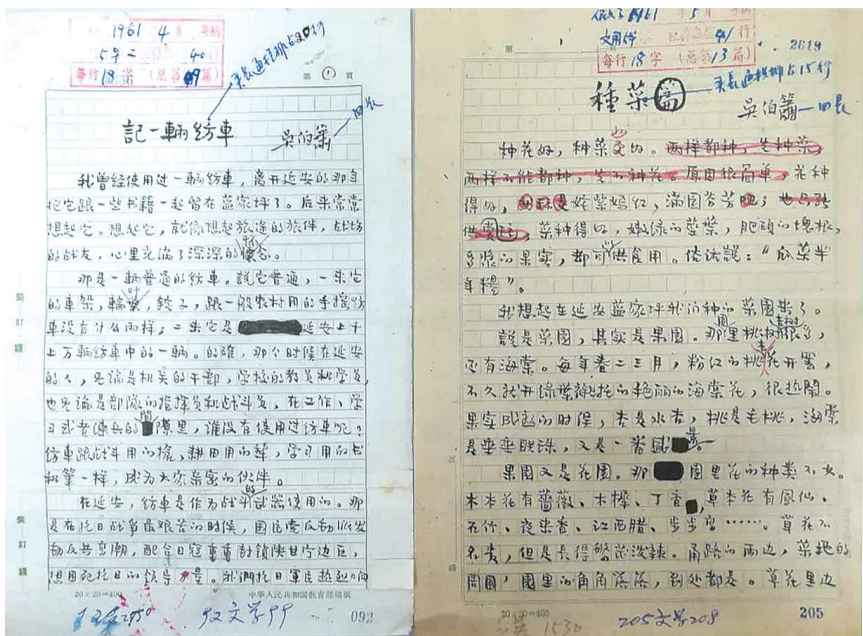 1961 年 4 月 号 稿
每行18字(总第 篇)
第 1 頁
記一輛紡車
吴伯箫
我曾经使用过一辆纺車,离开延安的那年
把它跟一些书籍一起留在蓝家坪了。后来常常
想起它。想起它,就像想起旅途的旅伴,战场
的战友,心里充满了深深的
那是一辆普通的纺車。說它普通,一来它
的車架,輪葉,锭子,跟一般农村用的手摇纺
車没有什么两样;二来它是 延安上千
上万辆纺車中的一辆。的确,那个时候在延安
的人,无論是机关的干部,学校的教员和学员,
也无論是部隊的指揮员和战斗员,在工作、学
习或者练兵的 隙里,谁没有使用过纺車呢?
纺車跟战斗用的槍,耕田用的犁,学习用的书
和筆一样,成为大家亲密的伙伴。
在延安,纺車是作为战斗的武器使用的。那
是在抗日战争最艰苦的时候,国民党反动派发
动反共高潮,配合日寇重重封鎖陕甘宁边区,
想困死抗日的 。我們抗日軍民熱烈响
20×20=400
中华人民共和国教育部稿紙
092
92文学99
裝訂綫
1961 年 5 月 号稿
每行18字(总第13篇)
2619
种菜
吴伯箫
种花好,种菜更好。两样都种,先种菜,
两样不能都种,先不种花。原因很简单,花种
得好, 姹紫嫣红,满園芬芳
菜种得好,嫩绿的莖葉,肥碩的塊根,
多漿的果实,都可供食用。俗话說:“瓜菜半
年糧”。
我想起在延安蓝家坪我们种的菜園来了。
說是菜園,其实是果園。那園里桃樹很多,
还有海棠。每年春二三月,粉红的桃 开罢,
不久就开绿葉 的艳丽的海棠花,很热鬧。
果实成熟的时候,杏是水杏,桃是毛桃,海棠
是垂垂联珠,又是一番 景。
果園又是花園。那 園里花的种类不少。
木本花有蔷薇、木槿、丁香,草本花有凤仙、
石竹、夜来香、江西腊、步步高……。草花不
名贵,但是长得繁茂泼辣。甬路的两边,菜地的
周圍,園里的角角落落,到处都是。草花里边
20×20=400
1530
205文学208
205